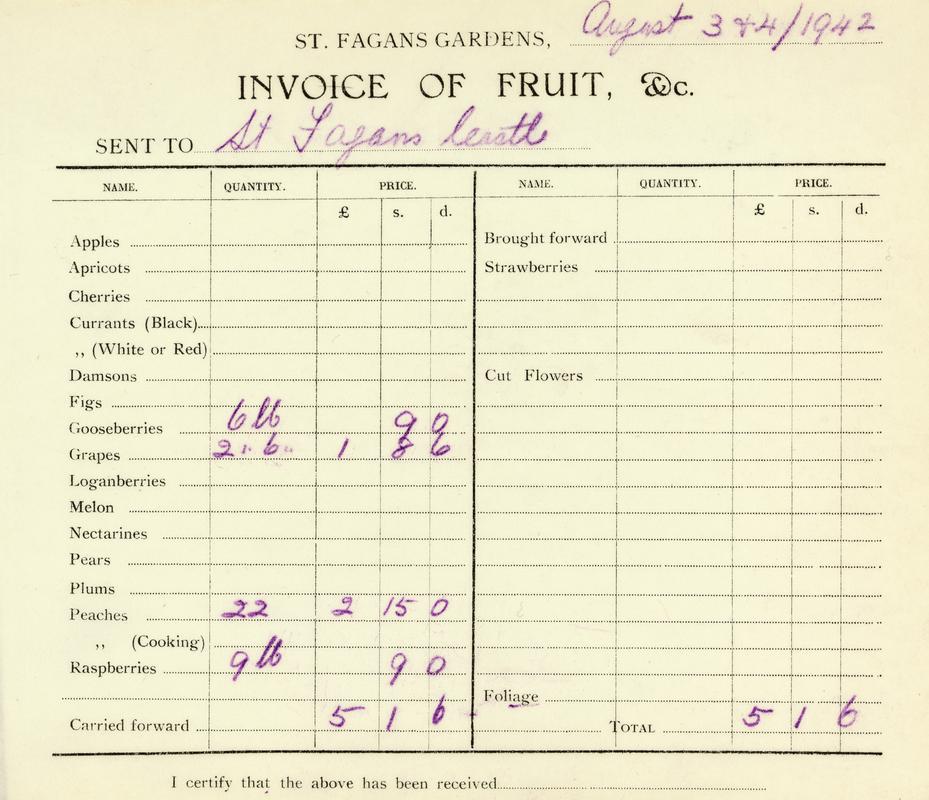 ST. FAGANS GARDENS, August 3 & 4/1942
INVOICE OF FRUIT, &c.
SENT TO St Fagans Castle
NAME. QUANTITY. PRICE. NAME. QUANTITY. PRICE.
£ s. d. £ s. d.
Apples Brought forward
Apricots Strawberries
Cherries
Currants (Black)
,, (White or Red)
Damsons Cut Flowers
Figs
Gooseberries 6 lb 9 0
Grapes 2 " 6 " 1 8 6
Loganberries
Melon
Nectarines
Pears
Plums
Peaches 22 2 15 0
,, (Cooking)
Raspberries 9 lb 9 0
Foliage
Carried forward 5 1 6 TOTAL 5 1 6
I certify that the above has been received